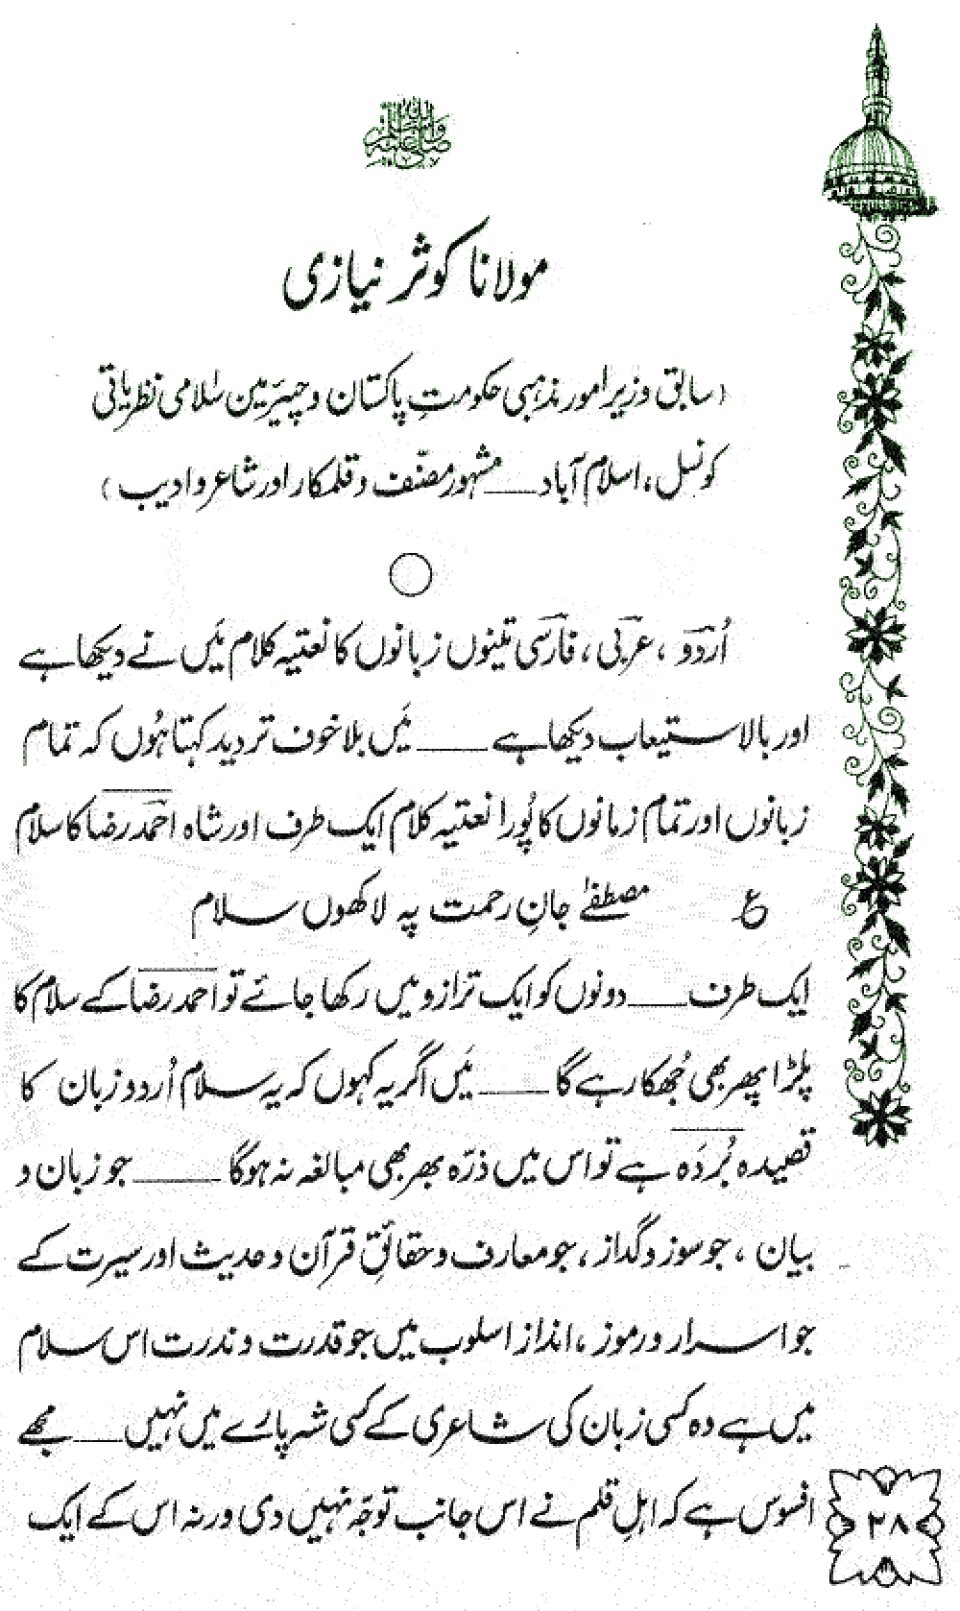 صلی اللہ علیہ وسلم
مولانا کوثر نیازی
(سابق وزیر امور مذہبی حکومتِ پاکستان و چیئرمین اسلامی نظریاتی
کونسل، اسلام آباد ــــ مشہور مصنّف و قلمکار اور شاعر و ادیب)
اُردو، عربی، فارسی تینوں زبانوں کا نعتیہ کلام مَیں نے دیکھا ہے
اور بالاستیعاب دیکھا ہے ــــ مَیں بلا خوف تردید کہتا ہُوں کہ تمام
زبانوں اور تمام زمانوں کا پُورا نعتیہ کلام ایک طرف اور شاہ احمد رضا کا سلام
ع مصطفےٰ جانِ رحمت پہ لاکھوں سلام
ایک طرف ــــ دونوں کو ایک ترازو میں رکھا جائے تو احمد رضا کے سلام کا
پلڑا پھر بھی جُھکا رہے گا ــــ مَیں اگر یہ کہوں کہ یہ سلام اُردو زبان کا
قصیدہ بُردَہ ہے تو اس میں ذرّہ بھر بھی مبالغہ نہ ہوگا ــــ جو زبان و
بیان، جو سوز و گداز، جو معارف و حقائقِ قرآن و حدیث اور سیرت کے
جو اسرار و رموز، انداز اسلوب میں جو قدرت و ندرت اس سلام
میں ہے وہ کسی زبان کی شاعری کے کسی شہ پارے میں نہیں ــــ مجھے
افسوس ہے کہ اہلِ قلم نے اس جانب توجّہ نہیں دی ورنہ اس کے ایک
۲۸